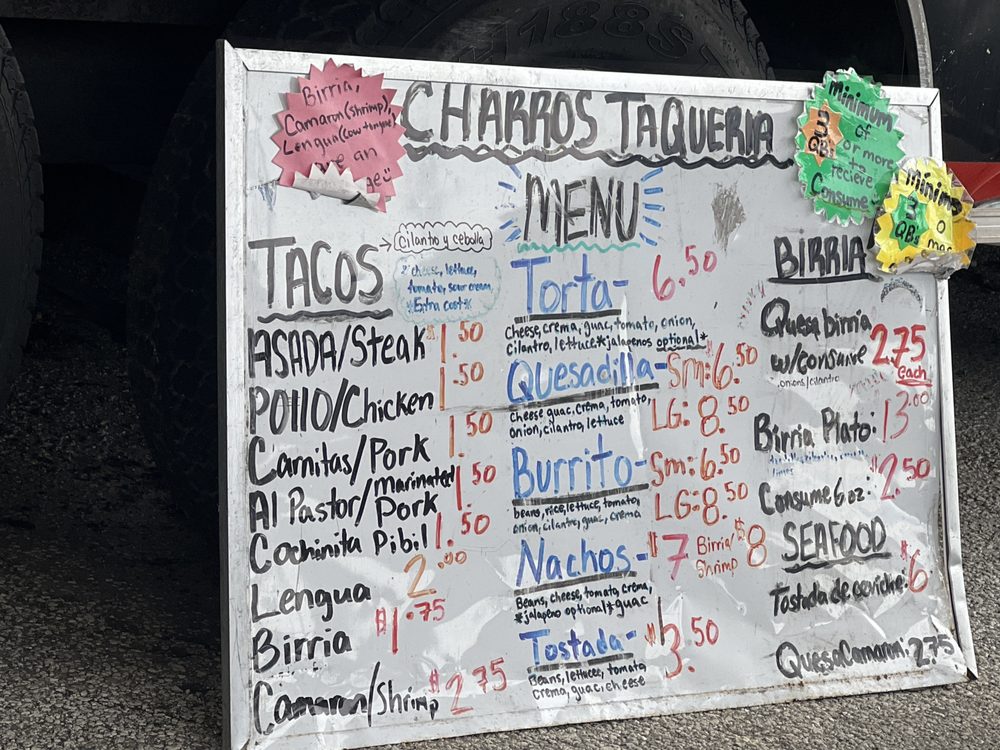 Birria,
Camaron(shrimp),
Lengua(cow tongue)
an
CHARROS TAQUERIA
minimum
of
3
QBs
or more
to
recieve
Consume
3
QBs
MENU
TACOS
cilantro y cebolla
*cheese, lettuce,
tomato, sour cream,
*Extra cost*
ASADA/Steak $1.50
POllO/Chicken 1.50
Carnitas/Pork 1.50
Al Pastor/marinated Pork 1.50
Cochinita Pibil 1.50
Lengua 2.00
Birria $1.75
Camaron/Shrimp $2.75
Torta- 6.50
Cheese, crema, guac, tomato, onion,
cilantro, lettuce *jalapenos optional*
Quesadilla- Sm: 6.50
LG: 8.50
Cheese guac, crema, tomato,
onion, cilantro, lettuce
Burrito- Sm: 6.50
LG: 8.50
beans, rice, lettuce, tomato,
onion, cilantro, guac, crema
Nachos- $7 Birria/Shrimp $8
Beans, cheese, tomato, crema,
*jalapeno optional* guac
Tostada- $3.50
Beans, lettuce, tomato,
crema, guac, cheese
BIRRIA
Quesabirria
w/consume 2.75
each
onions/cilantro
Birria Plato: 13.00
Consume 6 oz: $2.50
SEAFOOD
Tostada de ceviche: $6
QuesaCamaron: 2.75